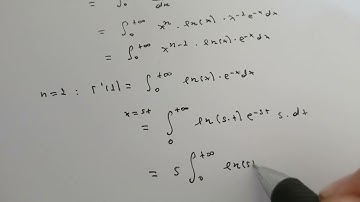 dx
= ∫₀^{+∞} xⁿ · ln(x) · x⁻¹ e⁻ˣ dx
= ∫₀^{+∞} xⁿ⁻¹ · ln(x) · e⁻ˣ dx
n=1 : Γ'(1) = ∫₀^{+∞} ln(x) · e⁻ˣ dx
x=st
= ∫₀^{+∞} ln(s·t) e⁻ˢᵗ s · dt
= s ∫₀^{+∞} ln(s